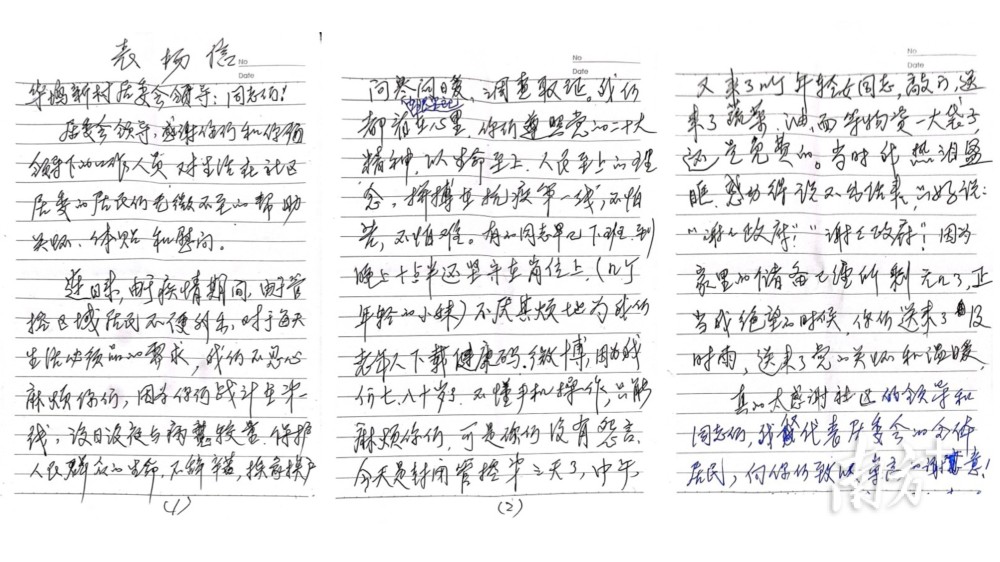 表扬信
No
Date
华鸿新村居委会领导：同志们！
居委会领导，感谢你们和你领
领导下的工作人员，对生活在社区
居委的居民们无微不至的帮助
关怀、体贴和慰问。
连日来，由于疫情期间，由于管
控区域居民不便外出，对于每天
生活必须品的需求，我们不忍心
麻烦你们，因为你们战斗在第一
线，没日没夜与病毒较量，保护
人民群众的生命，不辞辛苦，挨家挨户
(1)
No
Date
问寒问暖、调查取证。我们
都看在心里，你们遵照党的二十大
精神，以生命至上，人民至上的理
念，拼搏在抗疫第一线，不怕
苦，不怕难。有的同志早已下班，到
晚上十点半还坚守在岗位上，（几个
年轻的小妹）不厌其烦地为我们
老年人下载健康码，微博，因为我
们七、八十岁了，不懂手机操作，只能
麻烦你们，可是你们没有怨言。
今天是封闭管控第三天了，中午，
(2)
No
Date
又来了两个年轻女同志，敲门送
来了蔬菜、油、面等物资一大袋子，
还是免费的。当时我热泪盈
眶，感动得说不出话来，只好说：
“谢谢政府”！“谢谢政府”！因为
家里的储备已经所剩无几了，正
当我绝望的时候，你们送来了及
时雨，送来了党的关怀和温暖，
真的太感谢社区的领导和
同志们，我代表居委会的全体
居民，向你们致以崇高的谢意！
南方